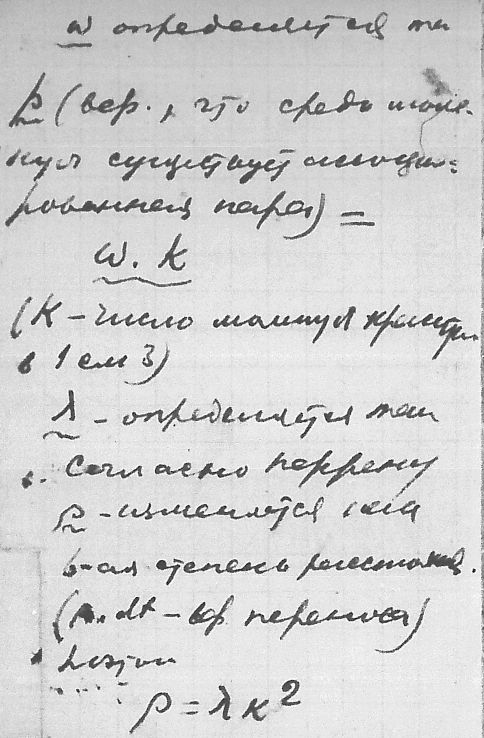 w определяется так
p (вер., что среди моле-
кул существует ассоции-
рованная пара) =
w. k
(K – число молекул
в 1 см 3)
λ – определяется так
. Согласно Перрену
ρ – изменяется как
6-ая степень расстояния.
(ρ. dt – вер переноса)
ρ = λ к²